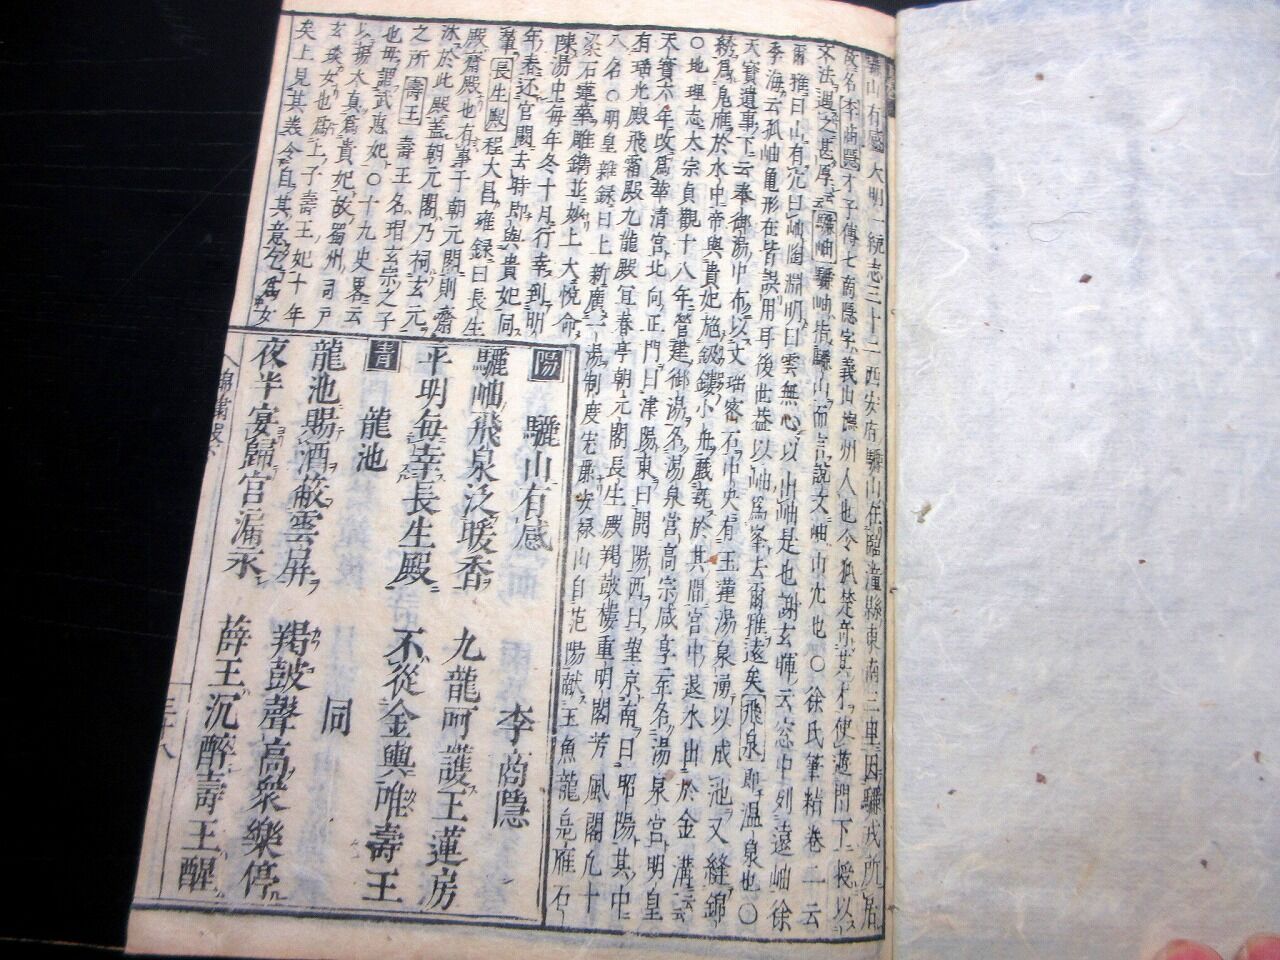 驪山有感 大明一統志三十二西安府驪山在臨潼縣東南二里因驪戎所居
故名 李商隱 才子傳七商隱字義山懷州人也令狐楚奇其才使遊門下授以
文法遇之甚厚云 驪岫 驪岫指驪山而言說文岫山穴也〇徐氏筆精卷二云
爾雅曰山有穴曰岫陶淵明曰雲無心以出岫是也謝玄暉云窓中列遠岫徐
季海云孤岫亀形在皆誤用耳後世益以岫為峯去爾雅遠矣 飛泉 即温泉也〇
天寶遺事下云奉御湯中布以文瑶密石中央有玉蓮湯泉湧以成池又縫錦
綉為鳧鴈於水中帝與貴妃施鈒鏤小舟戲翫於其間宮中退水出於金溝云云
〇地理志太宗貞觀十八年營建御湯名湯泉宮高宗咸亨二年名湯泉宮明皇
天寶六年改為華清宮北向正門曰津陽東曰開陽西曰望京南曰昭陽其中
有瑶光殿飛霜殿九龍殿宜春亭朝元閣長生殿羯鼓樓重明閣芳風閣凡十
八名〇明皇雜録曰上新廣一湯制度宏麗安禄山自范陽献玉魚龍鳧雁石
梁石蓮華雕鐫並妙上大悦命
陳湯中毎年冬十月行幸到明
年春还宮闕去時即與貴妃同
輦 長生殿 程大昌雍録曰長生
殿齋殿也有事于朝元閣則齋
沐於此殿蓋朝元閣乃祠玄元
之所 壽王 壽王名瑁玄宗之子
也毋謂武惠妃〇十九史畧云
以楊太真為貴妃故蜀州司戸
玄琰女也為上子壽王妃十年
矣上見其羙令自其意乞為女
陽 驪山有感 李商隱
驪岫飛泉泛暖香 九龍呵護玉蓮房
平明毎幸長生殿 不從金輿唯壽王
青 龍池 同
龍池賜酒蔽雲屏 羯鼓聲高衆樂停
夜半宴歸宮漏永 薛王沉醉壽王醒
三十八